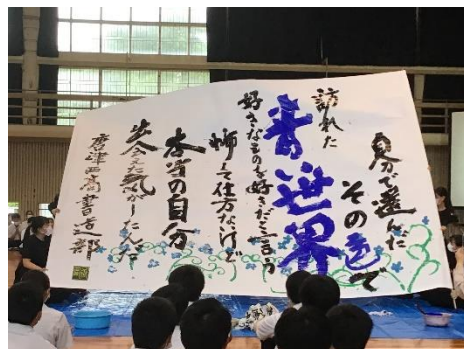 自分で選んだ
その色で
訪れた
青い世界
好きなものを好きだと言う
怖くて仕方ないけど
本当の自分
出会えた気がしたんだ
唐津西高書道部